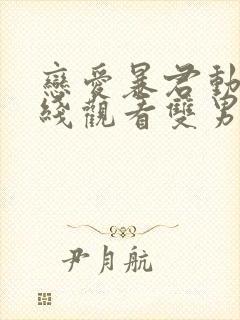 戀愛暴君動
綫觀看雙男
尹月航